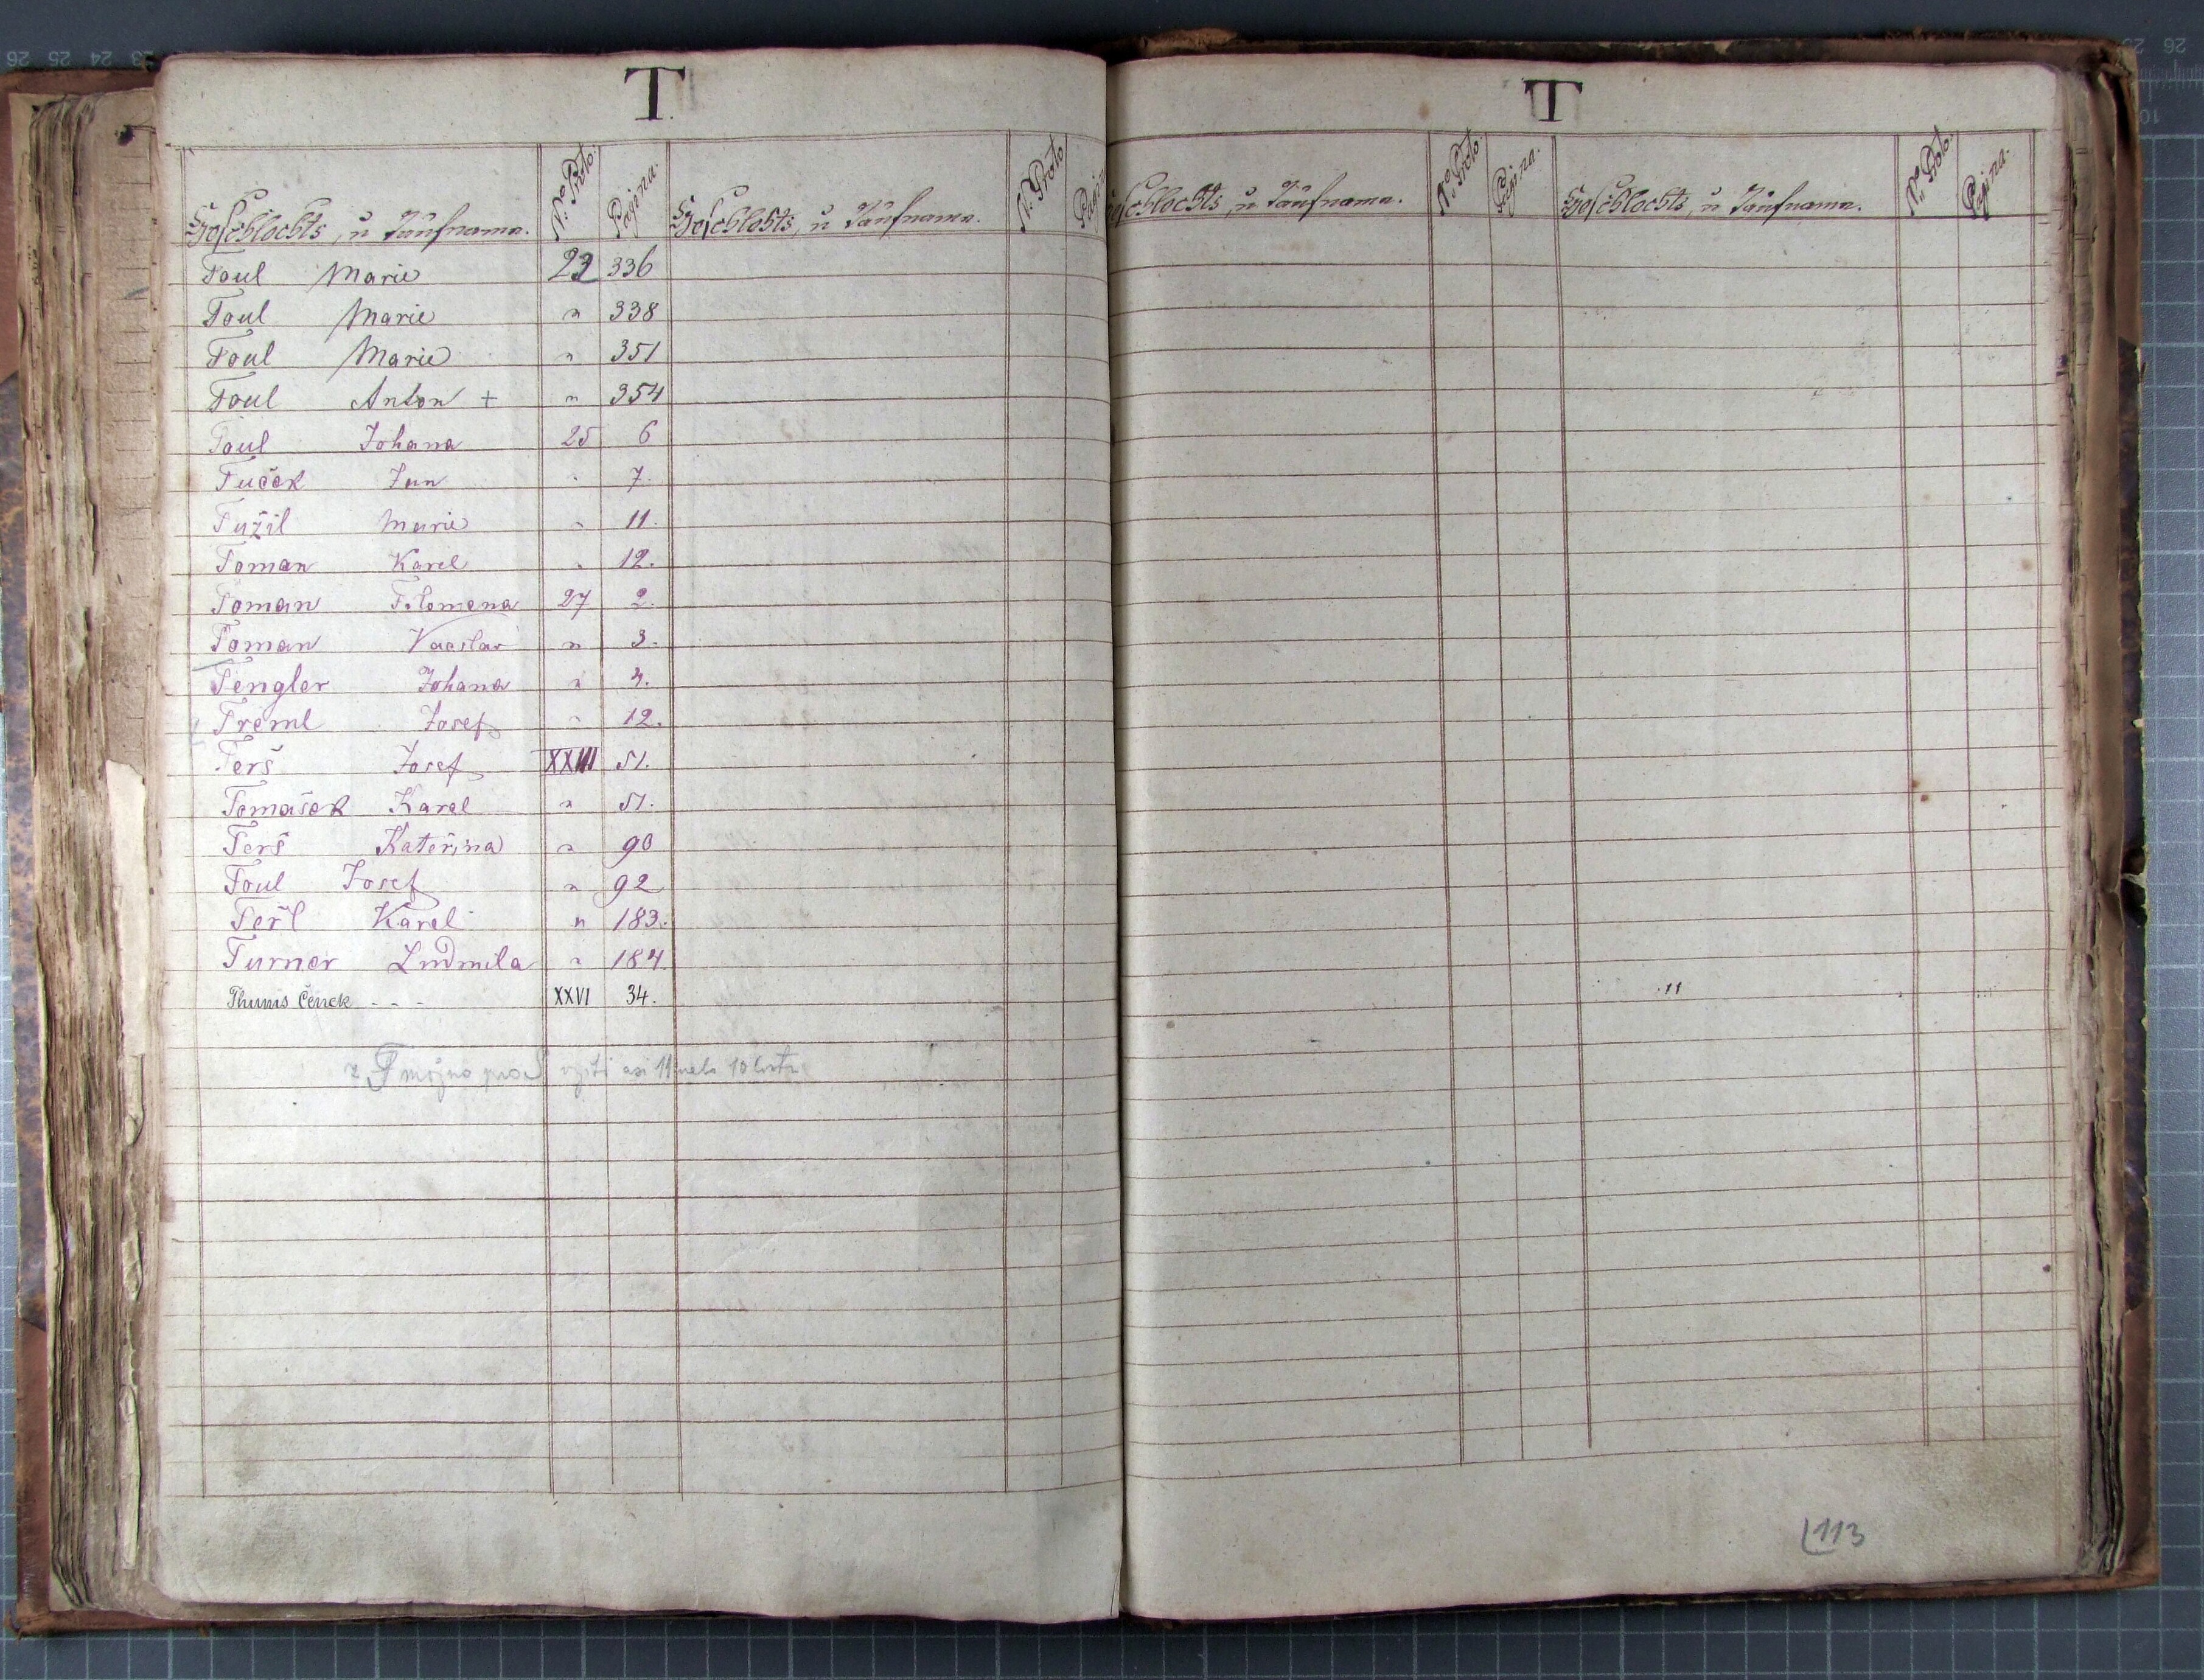 T
Geschlechts, u Taufname. Nº Proto. Pagina. Geschlechts, u Taufname. Nº Proto Pagin
Toul Marie 23 336
Toul Marie " 338
Toul Marie " 351
Toul Anton + " 354
Toul Johana 25 6
Tuček Jan " 7.
Tužil Marie " 11.
Toman Karel " 12.
Toman Filomena 27 2.
Toman Vacslav " 3.
Tengler Johana " 4.
Treml Josef " 12.
Terš Josef XXIII 51.
Tomašek Karel " 51.
Terš Kateřina " 90
Toul Josef " 92
Teřl Karel " 183.
Turner Ludmila " 184.
Thums Čeněk - - - XXVI 34.
z T možno 11 nebo 10 listů
T
Geschlechts, u Taufname. Nº Proto. Pagina. Geschlechts, u Taufname. Nº Proto. Pagina.
113